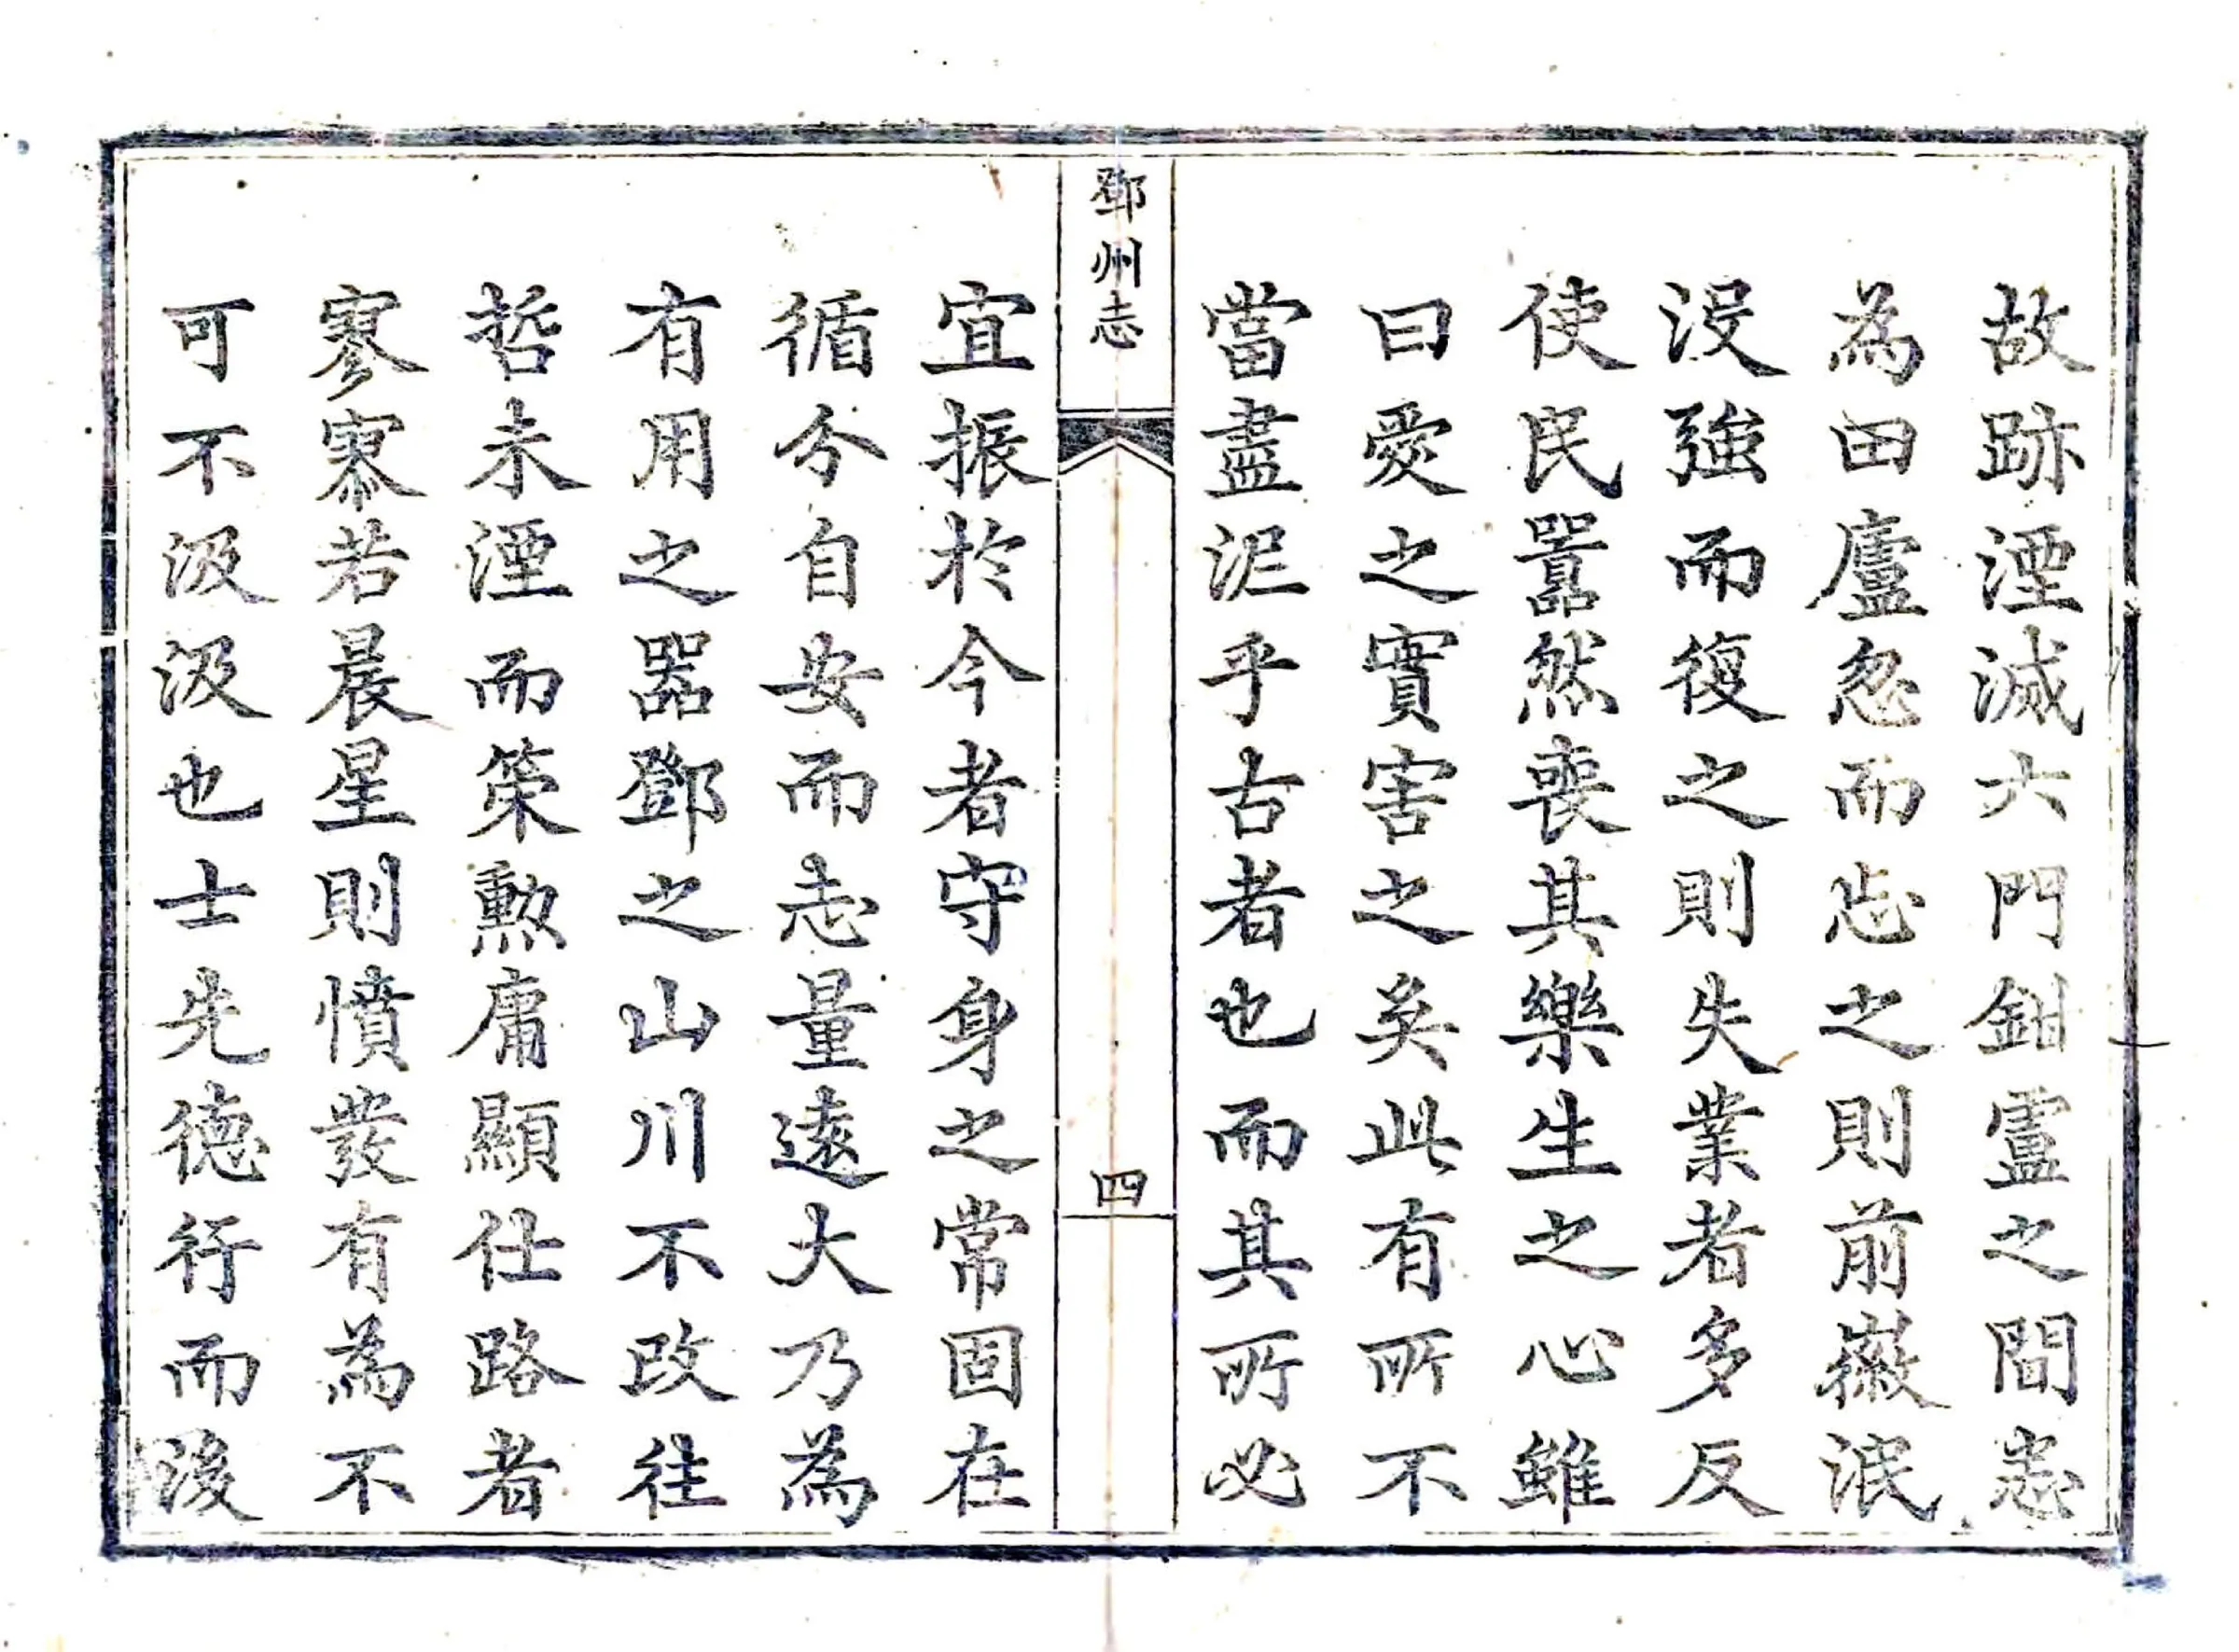 故跡湮滅六門鉗盧之間悉
為田廬忽而忘之則前徽泯
沒強而復之則失業者多反
使民囂然喪其樂生之心雖
曰愛之實害之矣此有所不
當盡泥乎古者也而其所必
鄧州志
四
宜振於今者守身之常固在
循分自安而志量遠大乃為
有用之器鄧之山川不改往
哲未湮而策勲庸顯仕路者
寥寥若晨星則憤發有為不
可不汲汲也士先德行而後